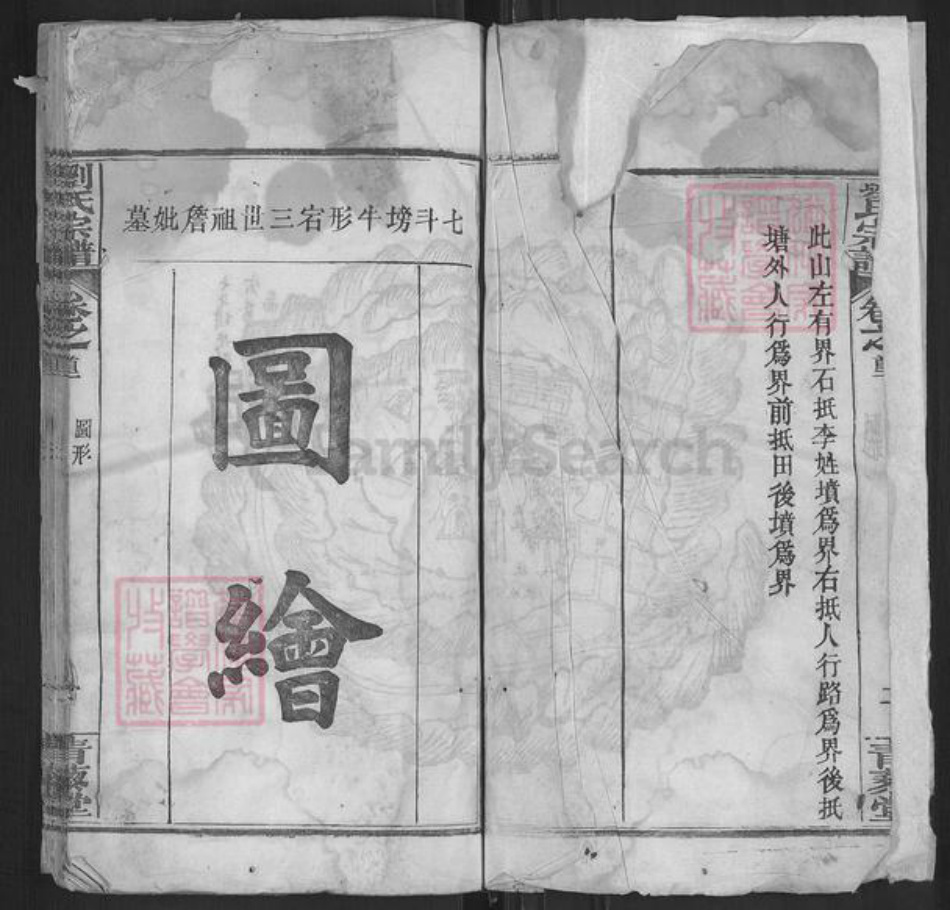 此山左有界石抵李姓墳爲界右抵人行路爲界後抵
塘外人行爲界前抵田後墳爲界
劉氏宗譜
青藜堂
七斗塝牛形宕三世祖詹妣墓
圖繪
劉氏宗譜
圖形
青藜堂
FamilySearch